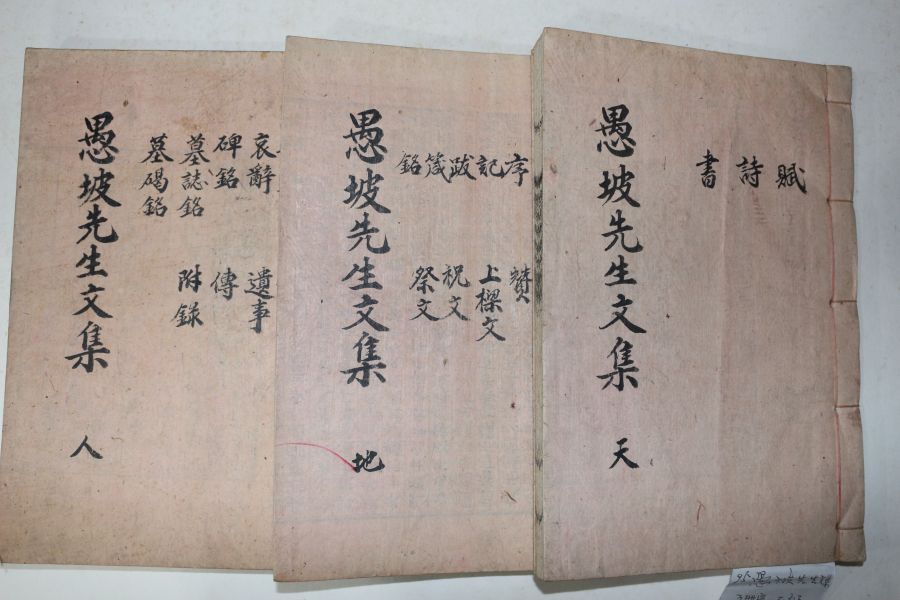 賦
詩
書
愚坡先生文集 天
序 贊
記 上樑文
跋 祝文
箴 祭文
銘
愚坡先生文集 地
哀辭 遺事
碑銘 傳
墓誌銘 附錄
墓碣銘
愚坡先生文集 人